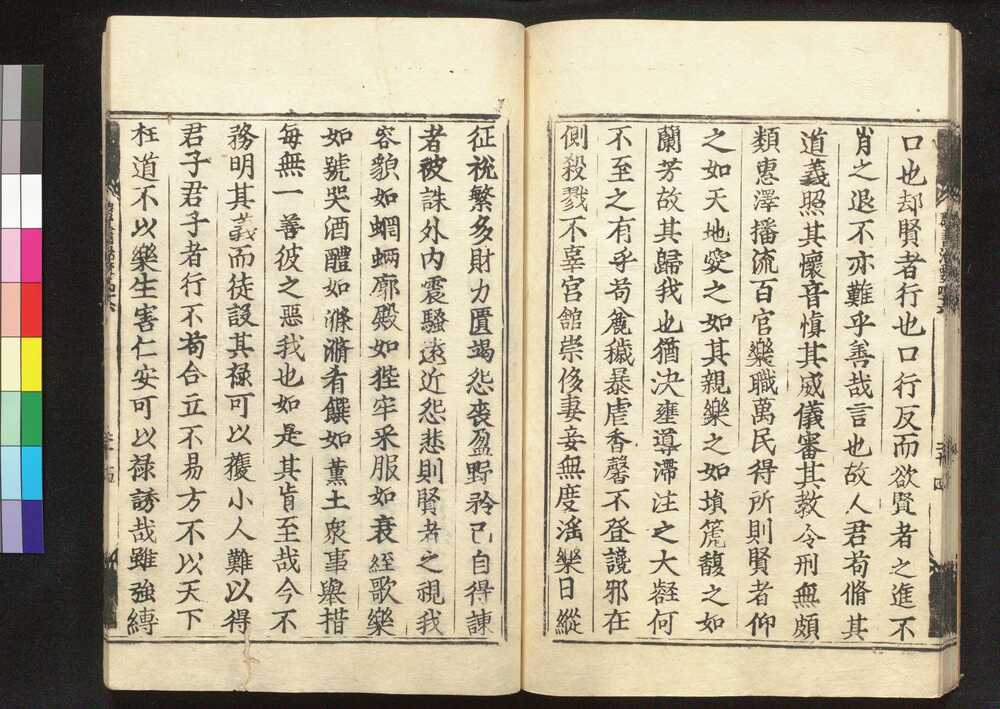 口也却賢者行也口行反而欲賢者之進不
肖之退不亦難乎善哉言也故人君苟脩其
道義照其懷音愼其威儀審其教令刑無頗
類惠澤播流百官樂職萬民得所則賢者仰
之如天地愛之如其親樂之如塤篪馥之如
蘭芳故其歸我也猶決壅導滯注之大壑何
不至之有乎苟麁穢暴虐香馨不登讒邪在
側殺戮不辜宮館崇侈妻妾無度淫樂日縱
征稅繁多財力匱竭怨喪盈野矜己自得諫
者被誅外內震騷遠近怨悲則賢者之視我
容貌如蝄蜽廓殿如狴牢采服如衰絰歌樂
如號哭酒醴如滫滫肴饌如薰土衆事舉措
每無一善彼之惡我也如是其肯至哉今不
務明其義而徒設其祿可以獲小人難以得
君子君子者行不苟合立不易方不以天下
枉道不以樂生害仁安可以祿誘哉雖強縛